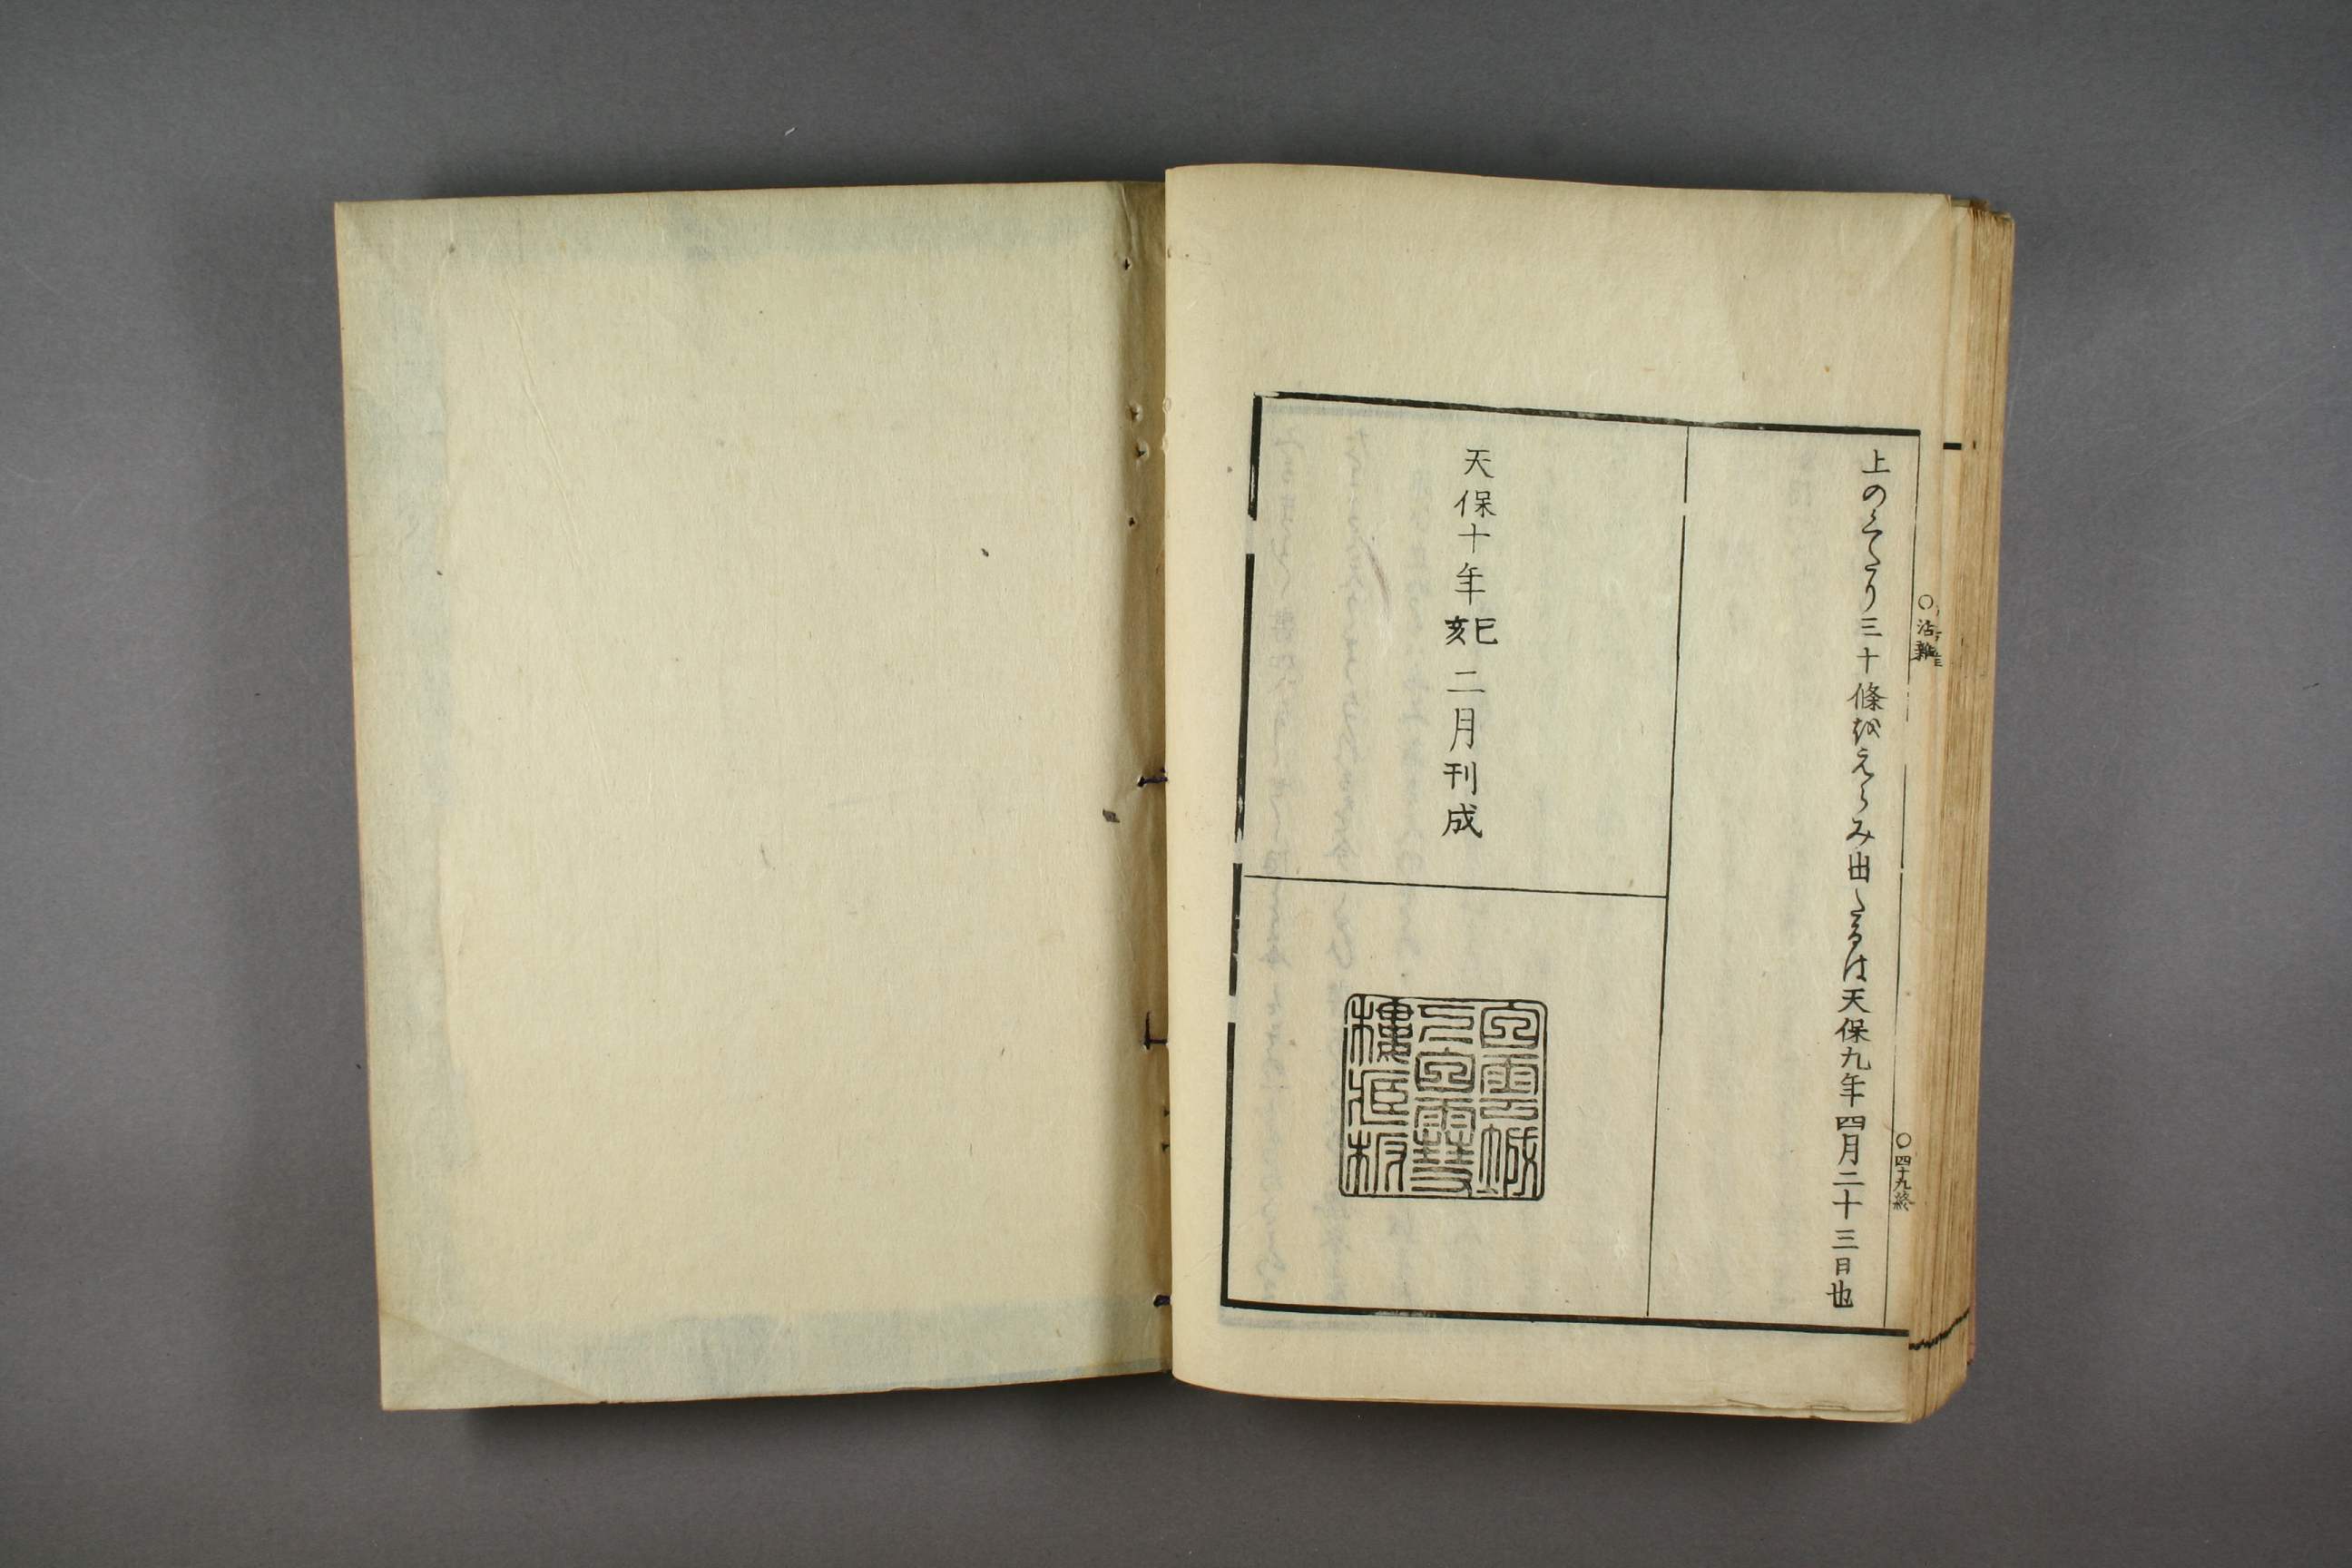 上のくたり三十條をえらみ出たるは天保九年四月二十三日也
天保十年己亥二月刊成
樓藏板
○四十九終